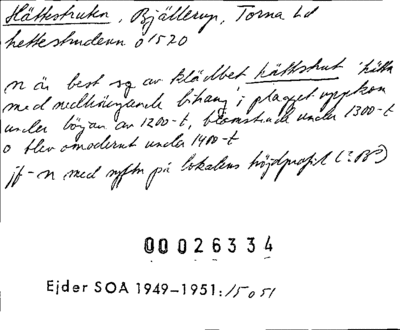 Hättstruten, Bjällerup, Torna hd
hettestrudenn o 1520
n är best sg av klädbet hättstrut 'hätta
med nedhängande bihang'; plagget uppkom
under början av 1200-t, blomstrade under 1300-t
o blev omodernt under 1400-t
jf-n med syftn på lokalens höjdprofil (:BP)
00026334
Ejder SOA 1949-1951:15 o 51